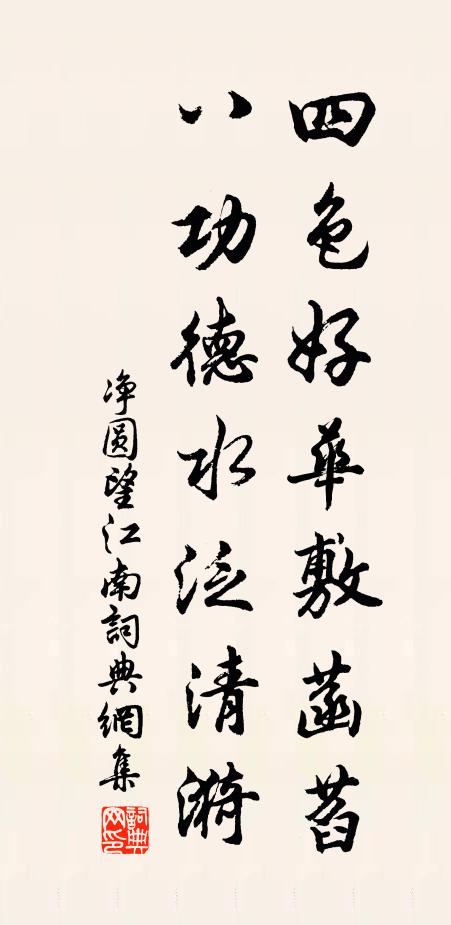 四色好華敷菡萏
八功德水泛清漪
净圓望江南詞典網集
詞典
网印